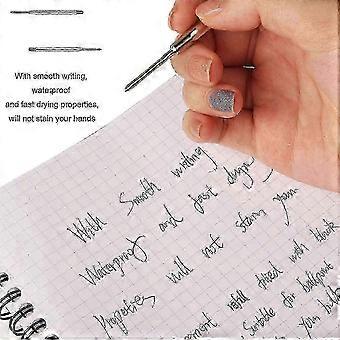 With smooth writing,
waterproof
and fast drying properties,
will not stain your hands
With Smooth writing
Waterproof and fast dryin
Properties Will not stain your
refill fitted with black
Suitable for ballpoint